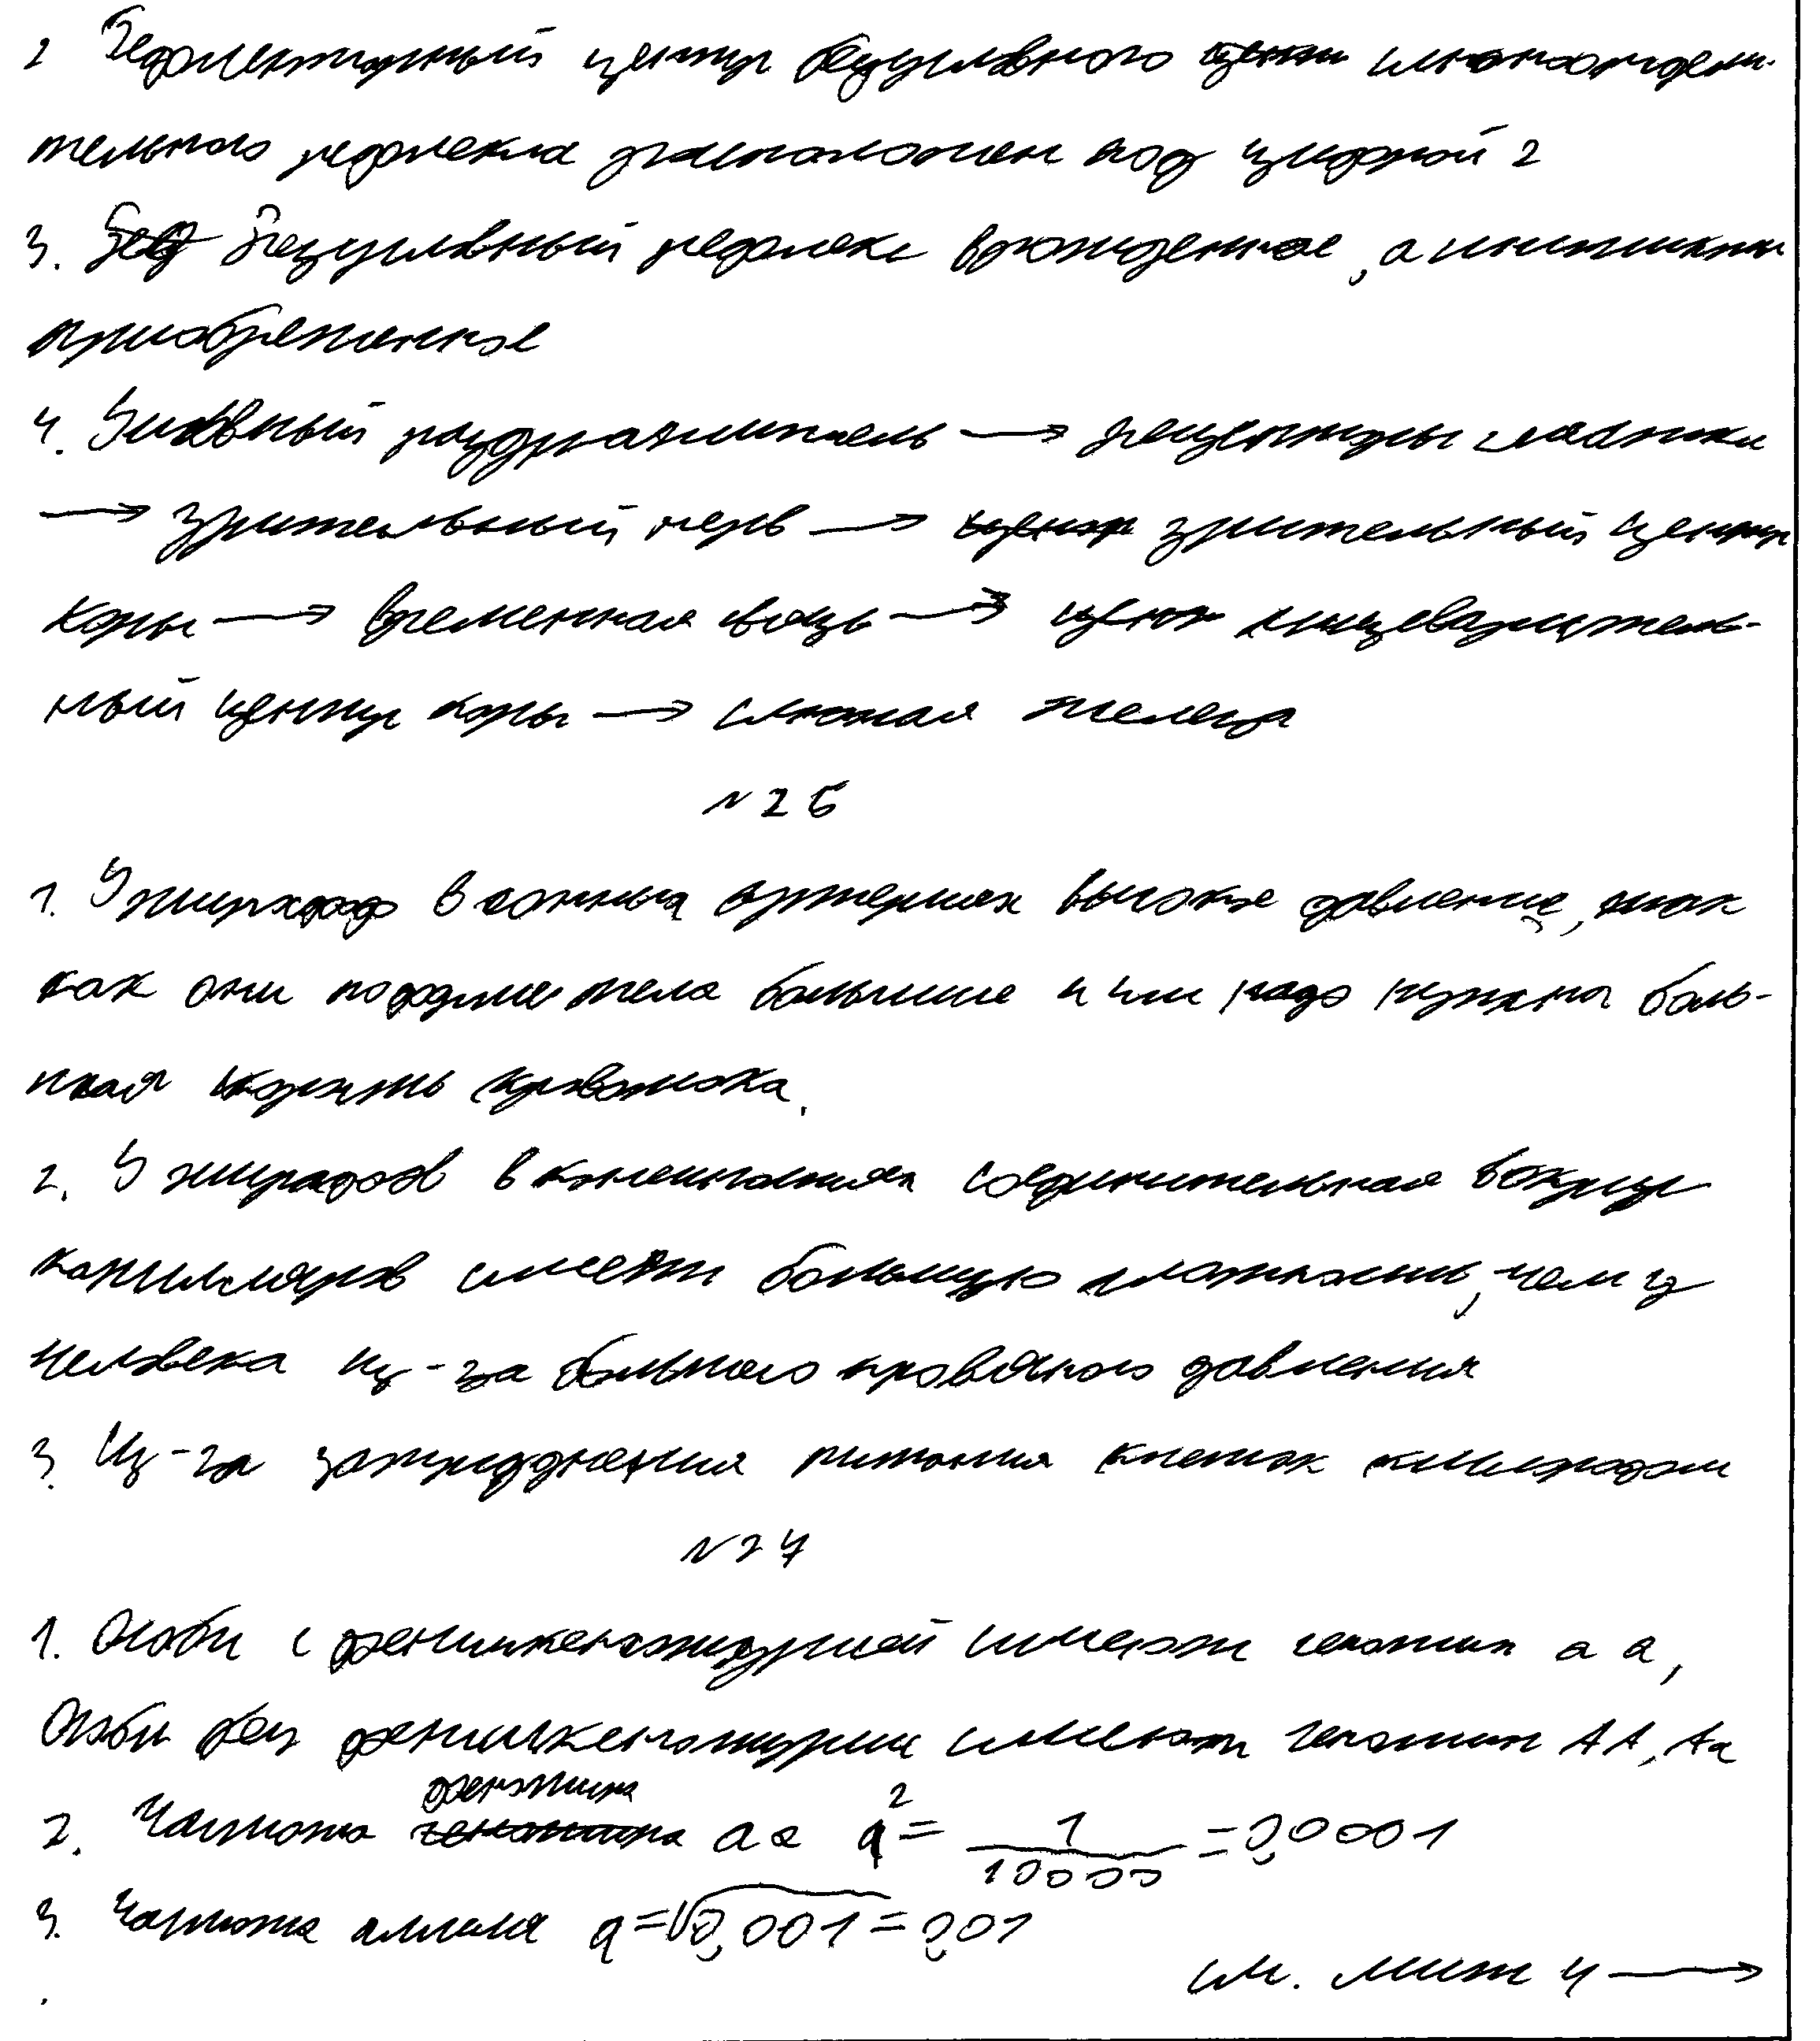 2 Рефлекторный центр безусловного центр слюноотдели-
тельного рефлекса расположен под цифрой 2
3. Безусловный рефлекс врожденное, а инстинкты
приобретенное
4. Условный раздражитель → рецепторы сетчатки
→ зрительный нерв → центр зрительный центр
коры → временная связь → центр пищеваритель-
ный центр коры → слюнная железа
№ 26
1. У жирафов в сонных артериях высокое давление, так
как они по форме тела больше и им надо нужна боль-
шая скорость кровотока.
2. У жирафов в конечностях соединительная вокруг
капилляров имеет большую плотность, чем у
человека из-за большого кровяного давления
3. Из-за затруднения питания клеток кислородом
№ 27
1. Особи с фенилкетонурией имеют генотип aa,
Особи без фенилкетонурии имеют генотип AA, Aa
фенотипа
2. Частота генотипа aa q² = 1/10000 = 0,0001
3. Частота аллеля q = √0,001 = 0,01
см. лист 4 →